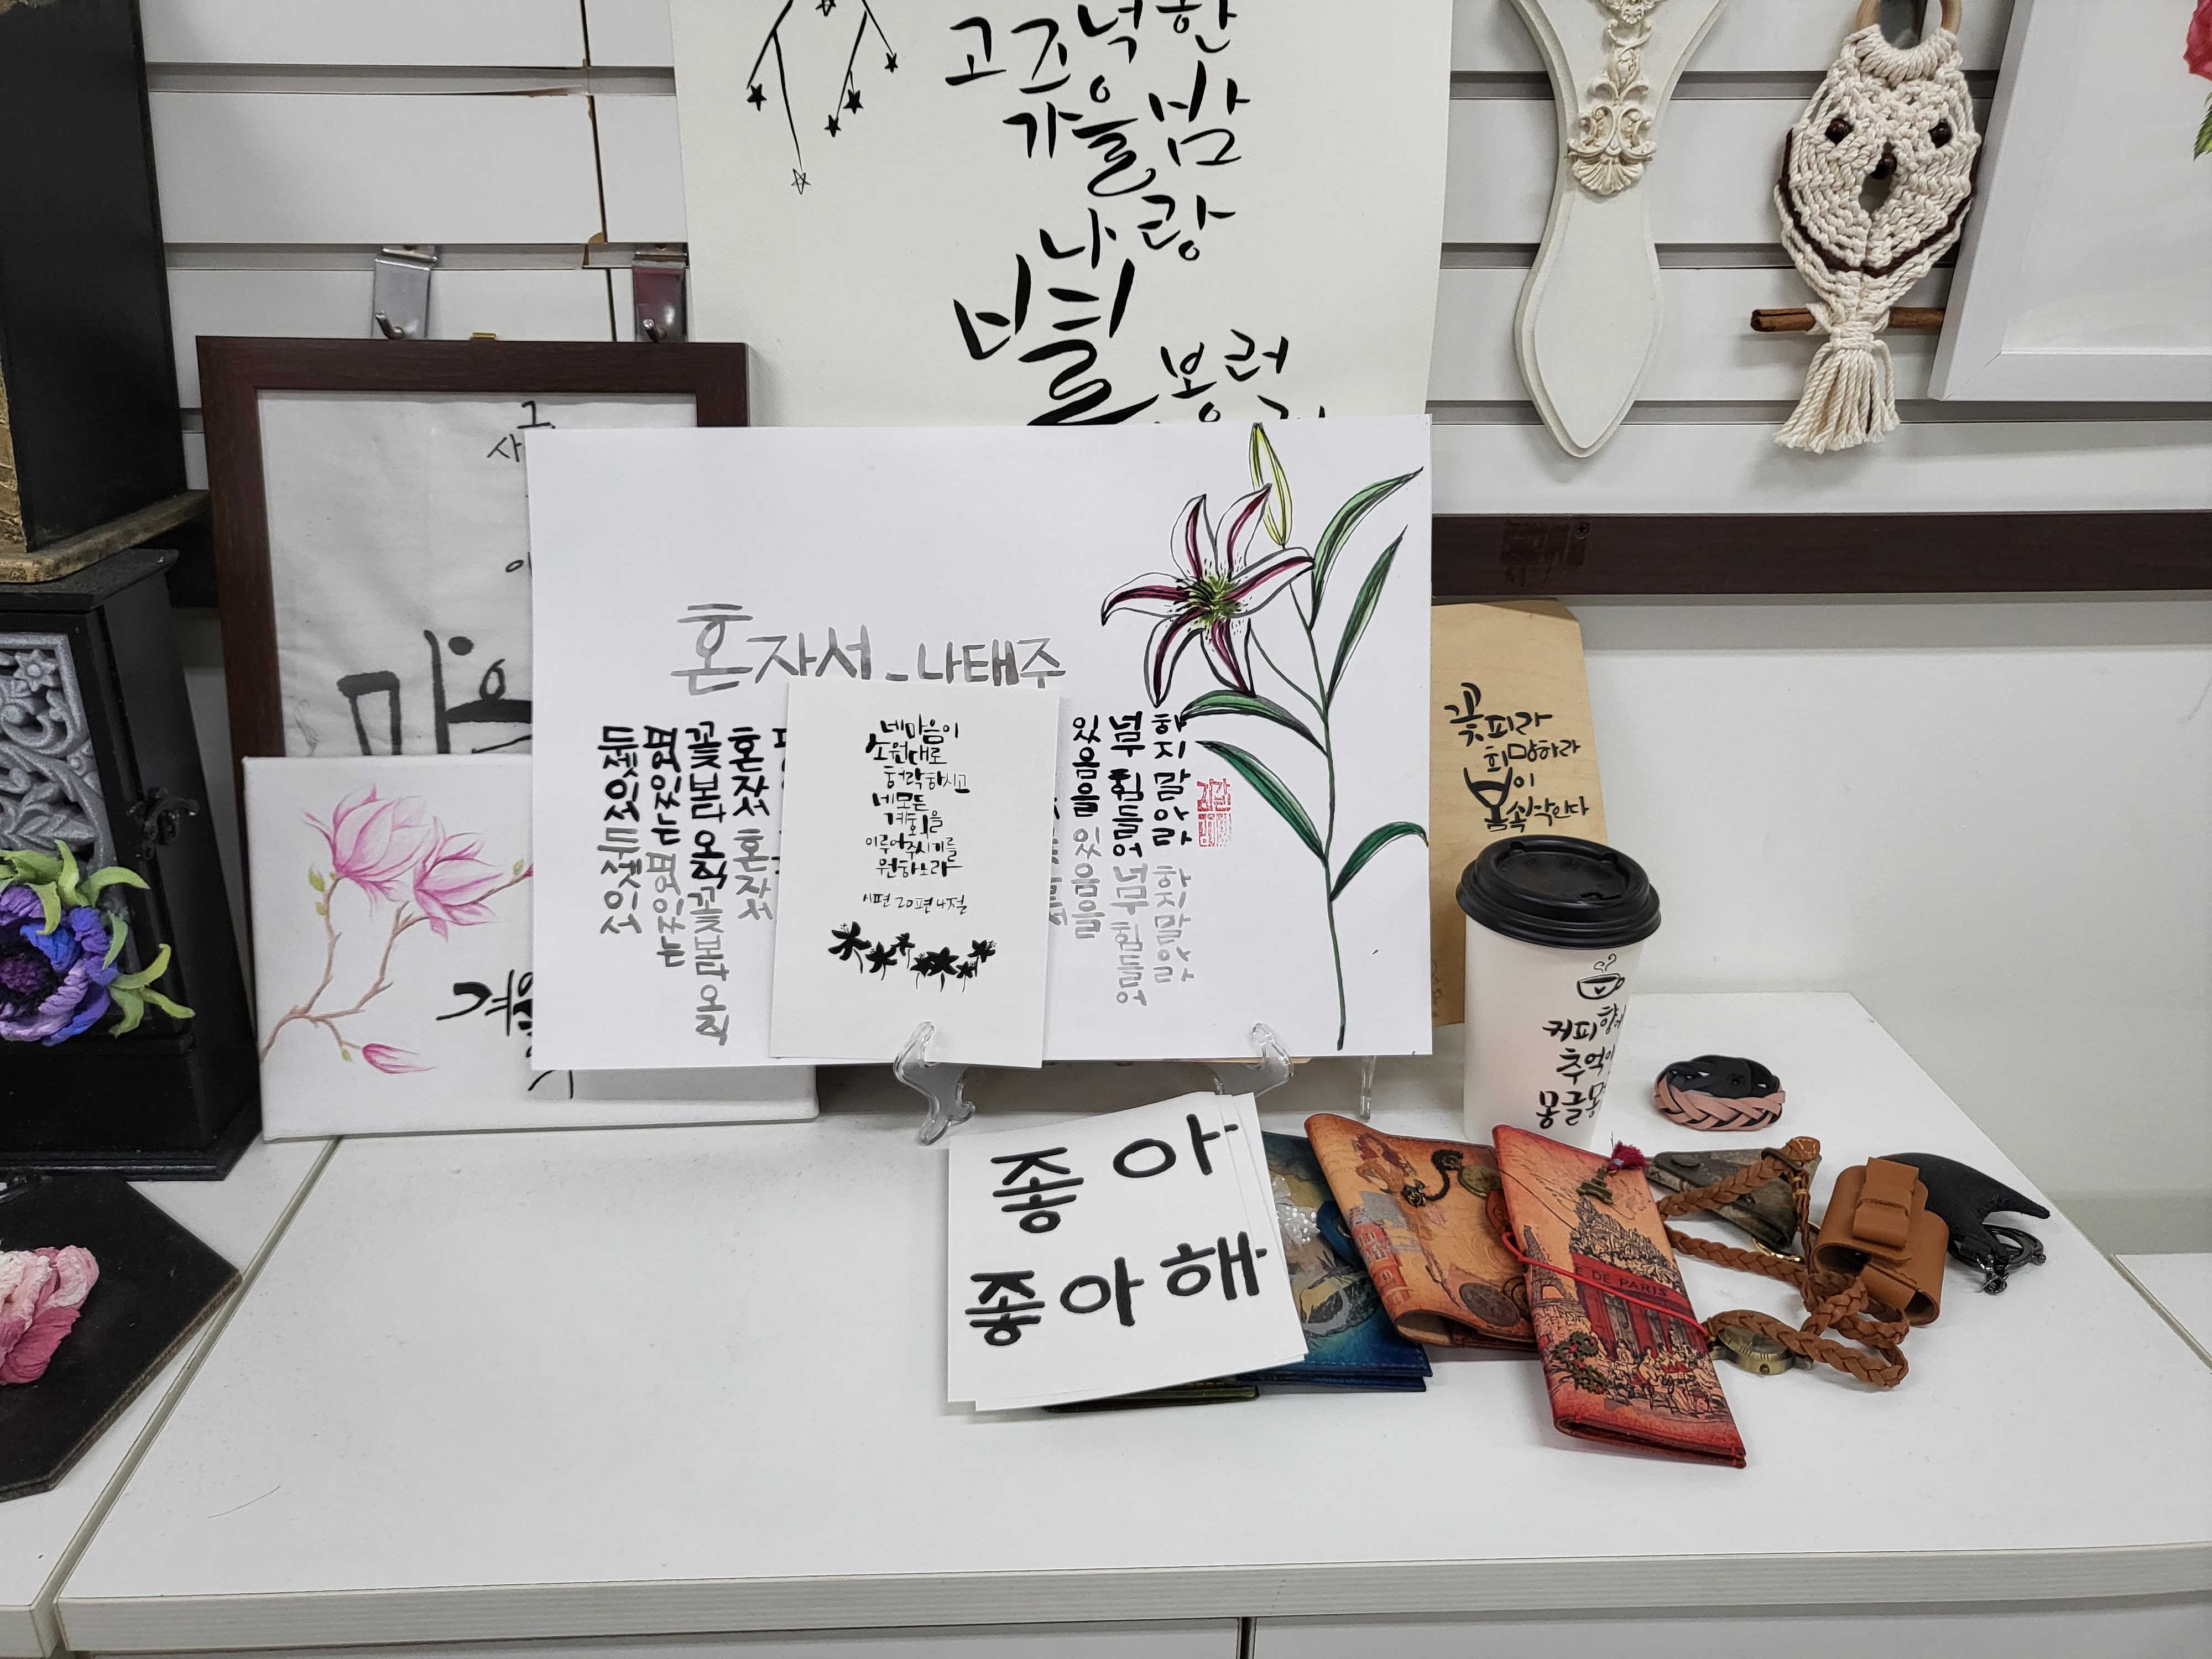 고즈넉한
가을밤
나랑
별
보러
그
사
마음
겨울
혼자서_나태주
둘셋이서 둘셋이서
피어있는 피어있는
꽃보다 오직 꽃보다 오직
혼자서 혼자서
있음을 있음을
너무 힘들어 너무 힘들어
하지말아라 하지말아라
네 마음이
소원대로
허락하시고
네 모든
계획을
이루어주시기를
원하노라
시편 20편 4절
꽃피라
희망하라
봄이
속삭인다
커피향에
추억이
몽글몽
좋아
좋아해
E DE PARIS